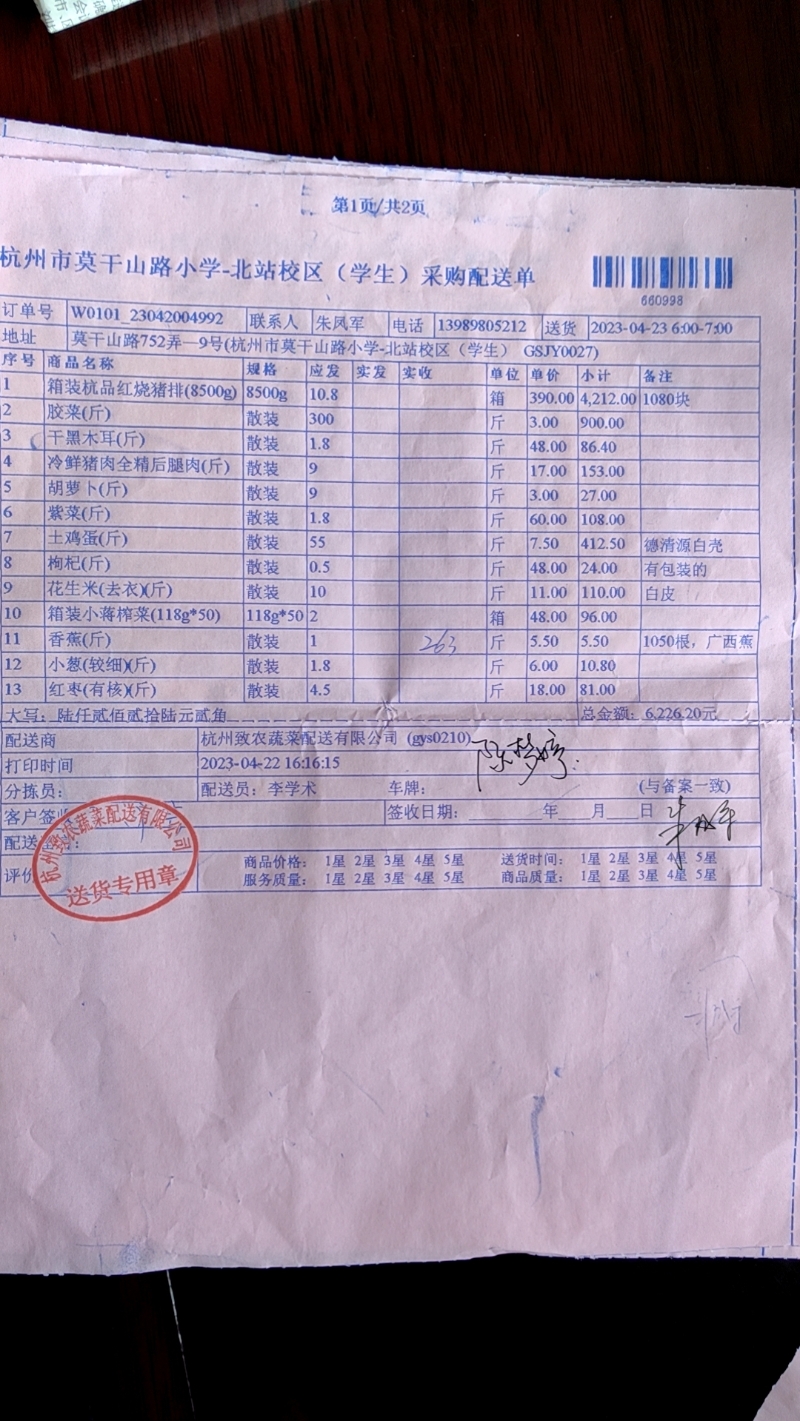 第1页/共2页
杭州市莫干山路小学-北站校区（学生）采购配送单
660998
订单号 W0101_23042004992 联系人 朱凤军 电话 13989805212 送货 2023-04-23 6:00-7:00
地址 莫干山路752弄一9号(杭州市莫干山路小学-北站校区（学生） GSJY0027)
序号 商品名称 规格 应发 实发 实收 单位 单价 小计 备注
1 箱装杭品红烧猪排(8500g) 8500g 10.8 箱 390.00 4,212.00 1080块
2 胶菜(斤) 散装 300 斤 3.00 900.00
3 干黑木耳(斤) 散装 1.8 斤 48.00 86.40
4 冷鲜猪肉全精后腿肉(斤) 散装 9 斤 17.00 153.00
5 胡萝卜(斤) 散装 9 斤 3.00 27.00
6 紫菜(斤) 散装 1.8 斤 60.00 108.00
7 土鸡蛋(斤) 散装 55 斤 7.50 412.50 德清源白壳
8 枸杞(斤) 散装 0.5 斤 48.00 24.00 有包装的
9 花生米(去衣)(斤) 散装 10 斤 11.00 110.00 白皮
10 箱装小蒋榨菜(118g*50) 118g*50 2 箱 48.00 96.00
11 香蕉(斤) 散装 1 263 斤 5.50 5.50 1050根，广西蕉
12 小葱(较细)(斤) 散装 1.8 斤 6.00 10.80
13 红枣(有核)(斤) 散装 4.5 斤 18.00 81.00
大写：陆仟贰佰贰拾陆元贰角 总金额：6,226.20元
配送商 杭州致农蔬菜配送有限公司 (gys0210)
打印时间 2023-04-22 16:16:15
分拣员： 配送员：李学术 车牌： (与备案一致)
客户签收 签收日期： 年 月 日
配送
评价 商品价格： 1星 2星 3星 4星 5星 送货时间： 1星 2星 3星 4星 5星
服务质量： 1星 2星 3星 4星 5星 商品质量： 1星 2星 3星 4星 5星
杭州致农蔬菜配送有限公司
送货专用章